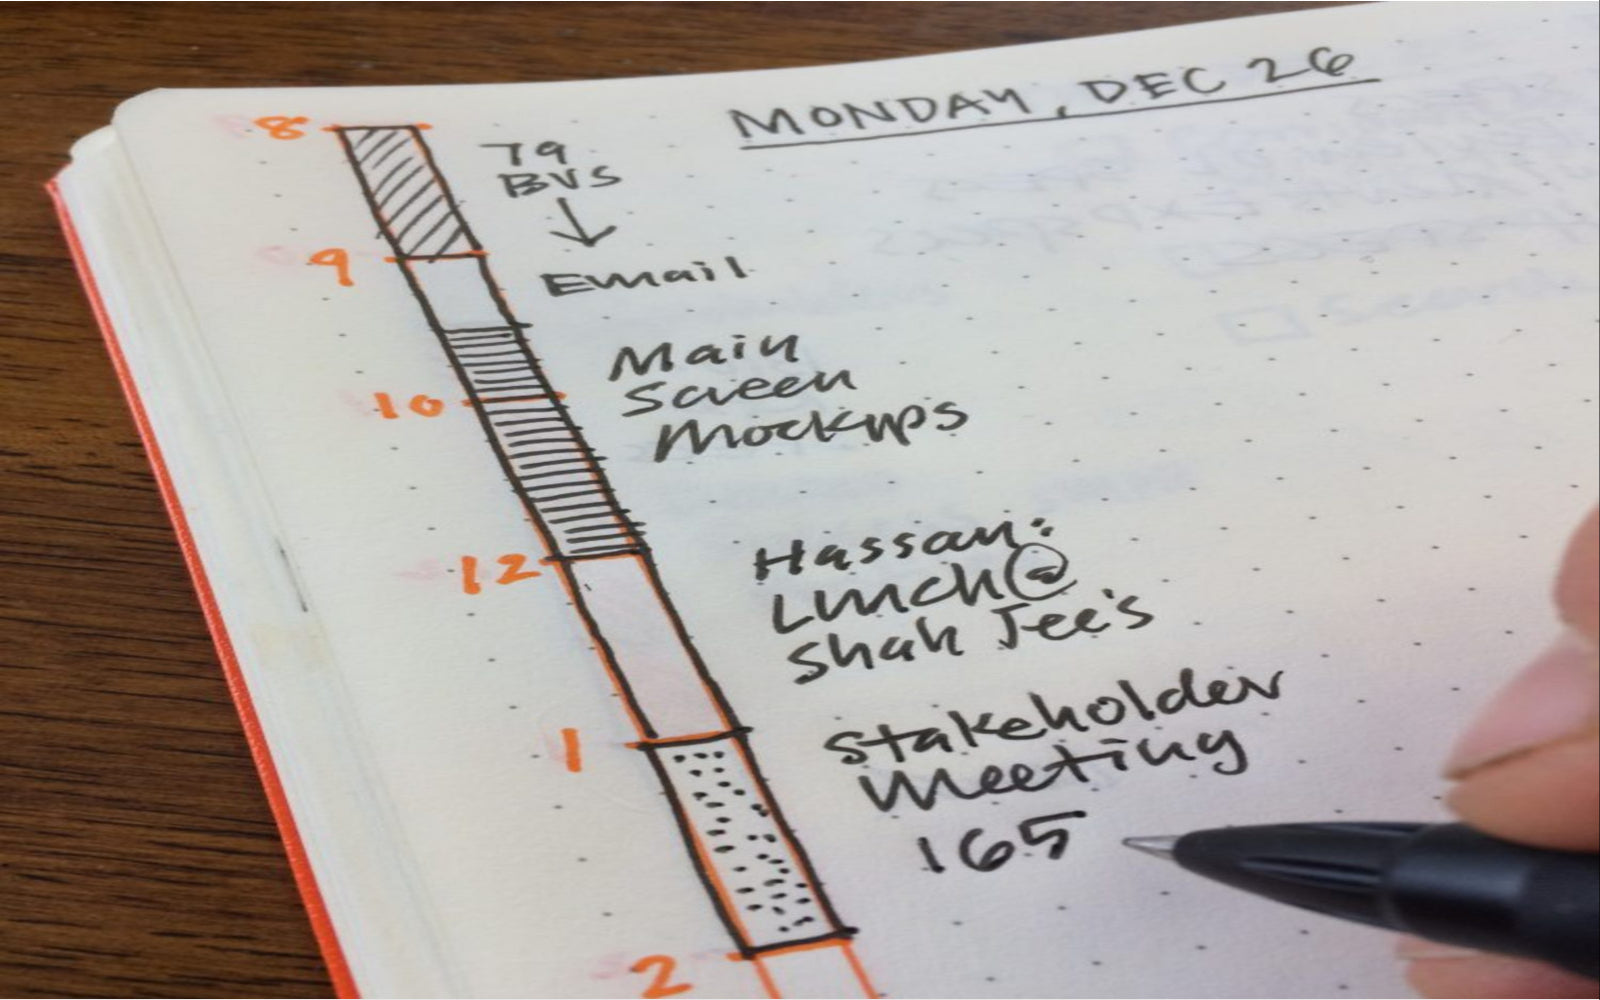 MONDAY, DEC 26
8
79
BVS
9
Email
Main
Screen
10
Mockups
Hassan:
12
Lunch@
Shah Jee's
Stakeholder
1
Meeting
165
2